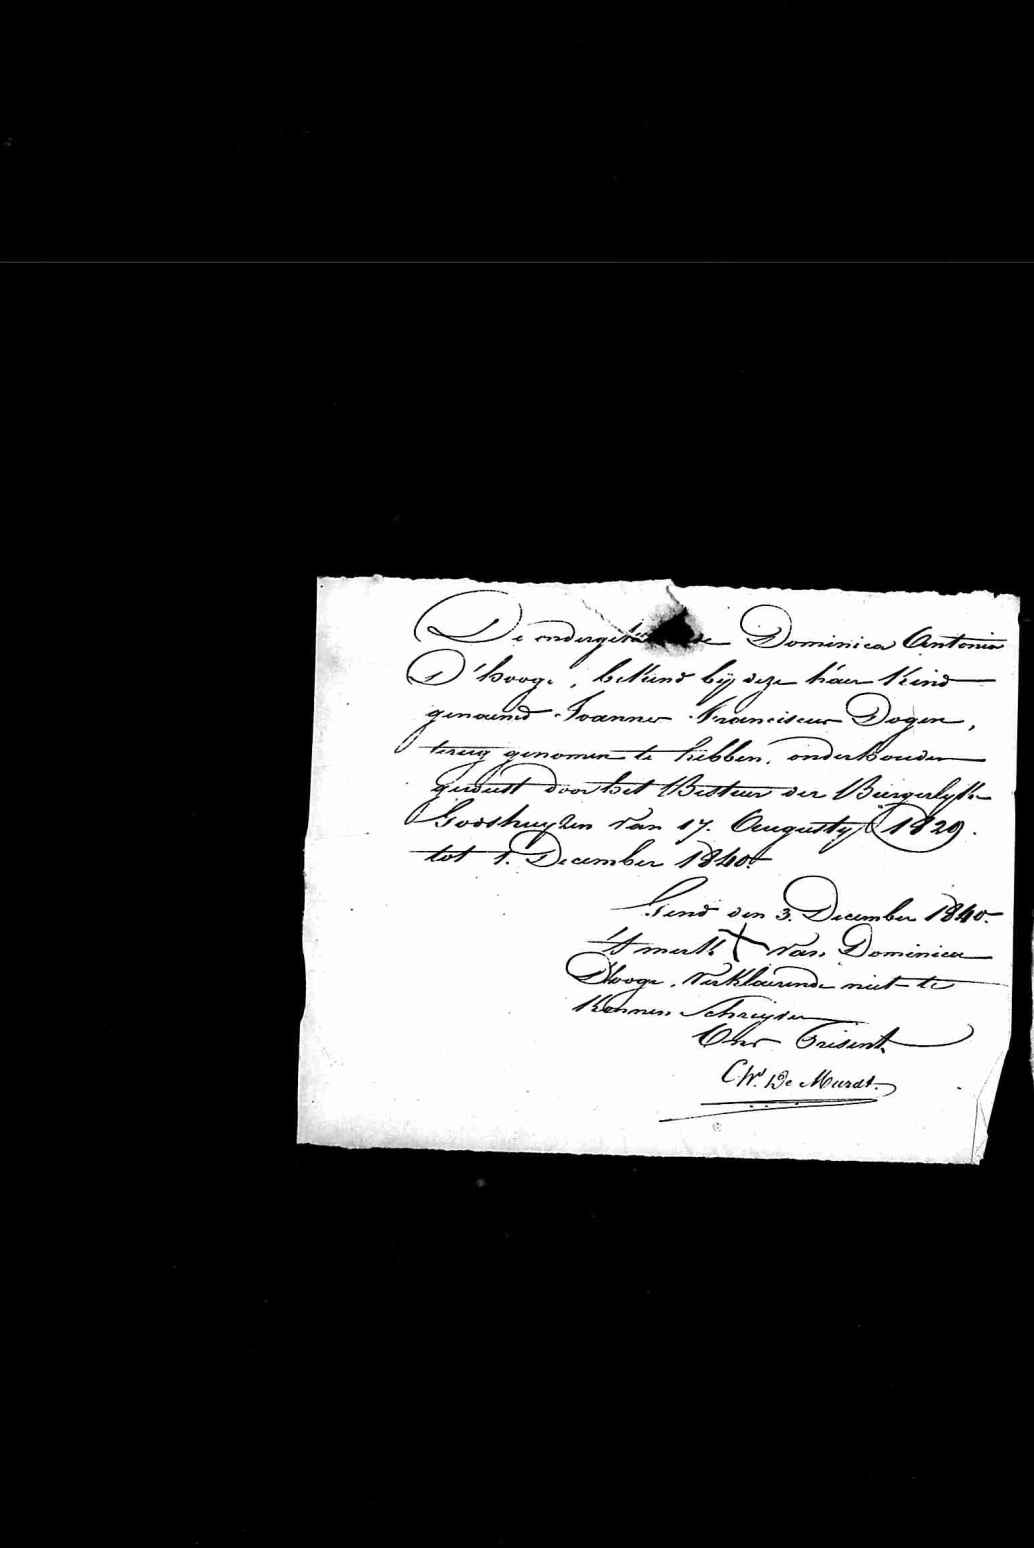 De ondergeteekende Dominica Antonia
D'hooge, bekend bij deze haer kind
genaemd Joannes Franciscus Dogen,
terug genomen te hebben, onderhouden
geweest door het Bestuer der Burgerlyke
Godshuyzen van 17. Augusty 1829.
tot 1. December 1840.
Gend den 3. December 1840.
't merk X van Dominica
D'hooge, verklaerende niet te
konnen Schreyven
Ons Present
De Muedt.